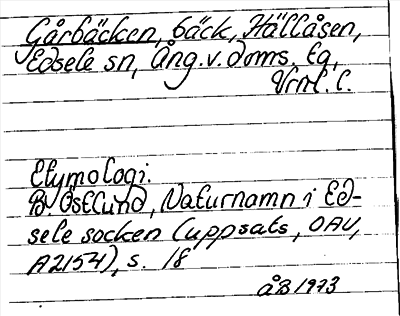 Gårbäcken, bäck, Hällåsen,
Edsele sn, Ång.v.doms. tg,
Vrnl. l.
Etymologi.
B. Östlund, Naturnamn i Ed-
sele socken (uppsats, OAU,
A2154), s. 18
ÅB 1973